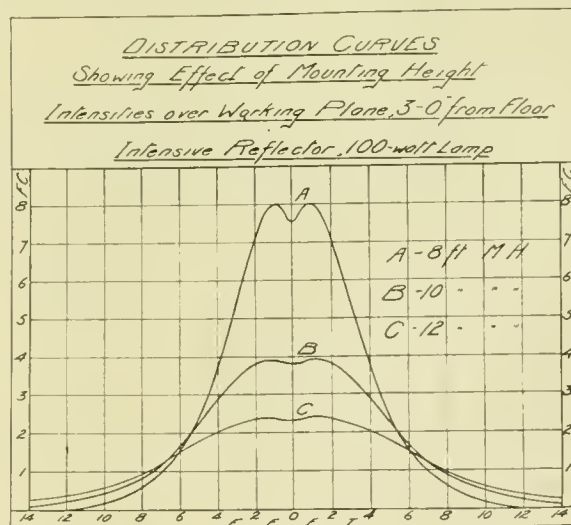 DISTRIBUTION CURVES
Showing Effect of Mounting Height
Intensities over Working Plane, 3-0" from Floor
Intensive Reflector, 100-watt Lamp
FC FC
8 A 8
7 7
A - 8 ft M H
6 6
B - 10 " " "
5 5
C - 12 " " "
4 4
B
3 3
C
2 2
1 1
14 12 10 8 6 4 2 0 2 4 6 8 10 12 14
F E E T